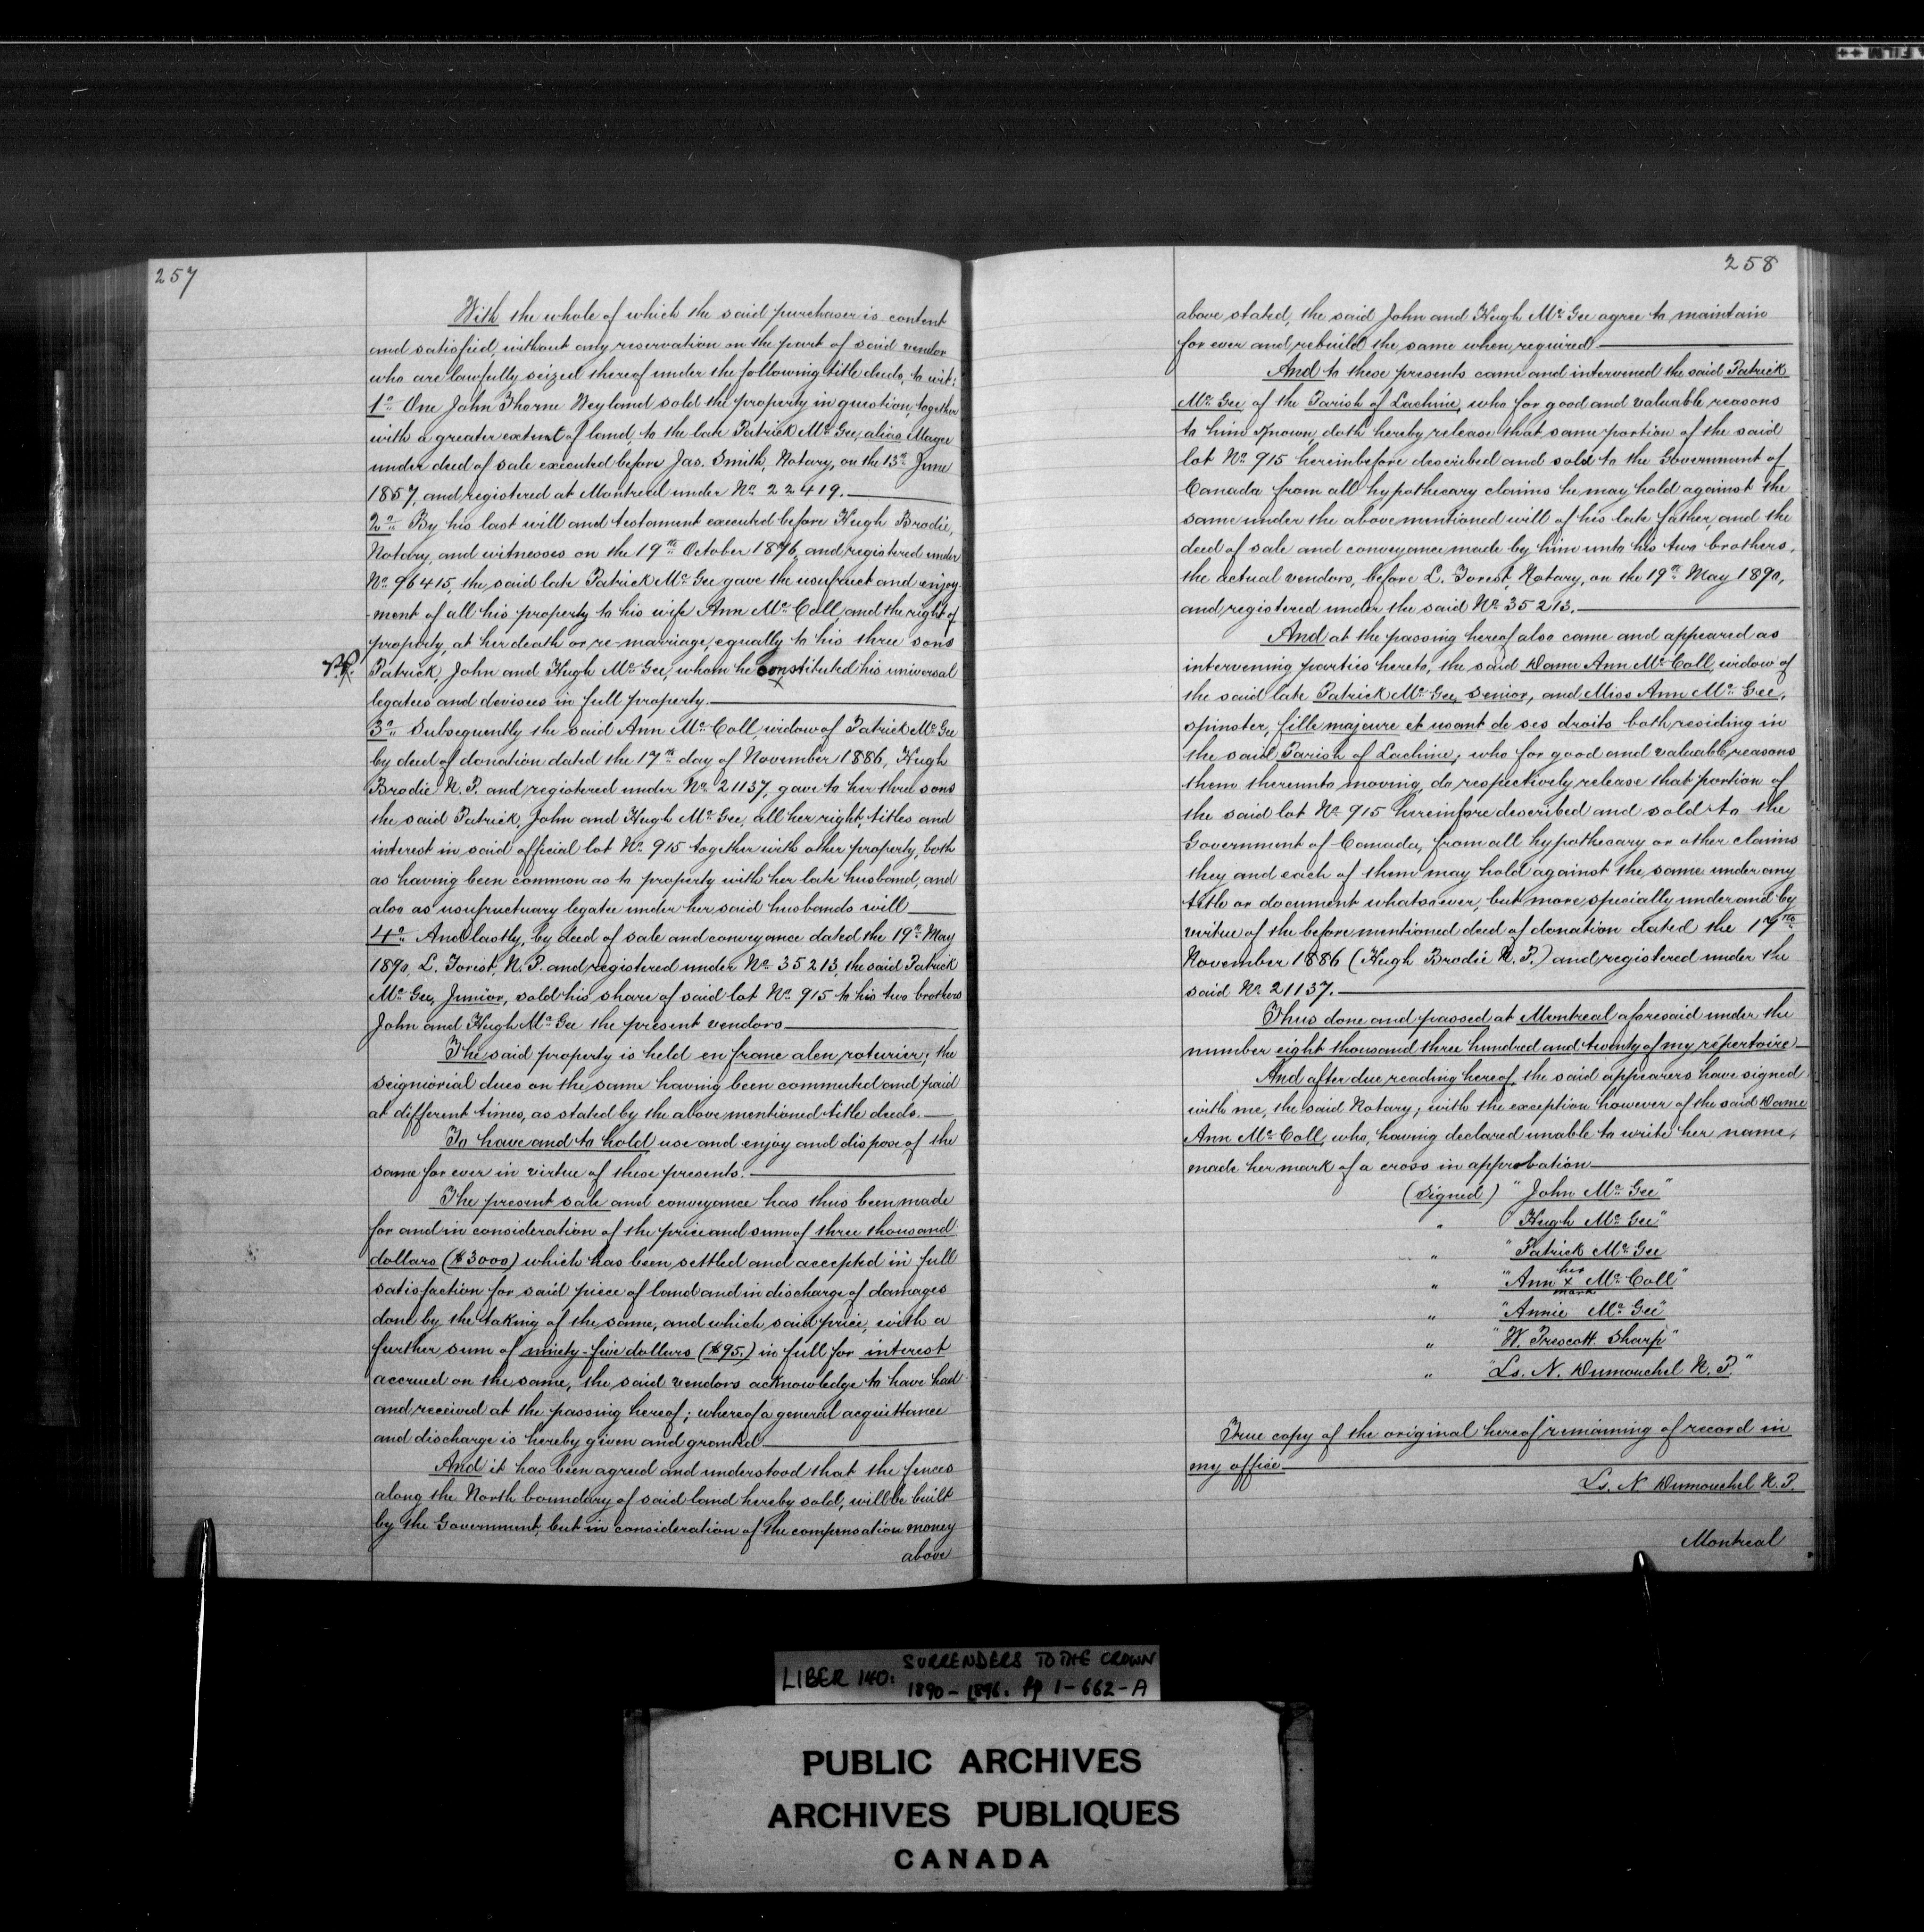 257
With the whole of which the said purchaser is content
and satisfied, without any reservation on the part of said vendor
who are lawfully seized thereof under the following title deeds, to wit:
1o One John Thorne Weyland sold the property in question, together
with a greater extent of land to the late Patrick Mc Gee, alias Magee
under deed of sale executed before Jas. Smith, Notary, on the 13th June
1857, and registered at Montreal under No 22419.
2o By his last will and testament executed before Hugh Brodie,
Notary, and witnesses on the 19th October 1876, and registered under
No 96415, the said late Patrick Mc Gee gave the usufruct and enjoy-
-ment of all his property to his wife Ann Mc Coll, and the right of
property, at her death or re-marriage, equally to his three sons
Patrick, John and Hugh Mc Gee, whom he constituted his universal
legatees and devisees in full property.
3o Subsequently the said Ann Mc Coll widow of Patrick Mc Gee
by deed of donation dated the 17th day of November 1886, Hugh
Brodie N. P. and registered under No 21137, gave to her three sons
the said Patrick, John and Hugh Mc Gee, all her right, titles and
interest in said official lot No 915 together with other property, both
as having been common as to property with her late husband, and
also as usufructuary legatee under her said husbands will
4o And lastly, by deed of sale and conveyance dated the 19th May
1890, L. Forest, N. P. and registered under No 35213, the said Patrick
Mc Gee, Junior, sold his share of said lot No 915 to his two brothers
John and Hugh Mc Gee the present vendors
The said property is held en franc aleu, roturier; the
seigniorial dues on the same having been commuted and paid
at different times, as stated by the above mentioned title deeds.
To have and to hold use and enjoy and dispose of the
same for ever in virtue of these presents.
The present sale and conveyance has thus been made
for and in consideration of the price and sum of three thousand
dollars ($3000) which has been settled and accepted in full
satisfaction for said piece of land and in discharge of damages
done by the taking of the same, and which said price, with a
further sum of ninety-five dollars ($95.) in full for interest
accrued on the same, the said vendors acknowledge to have had
and received at the passing hereof; whereof a general acquittance
and discharge is hereby given and granted
And it has been agreed and understood that the fences
along the North boundary of said land hereby sold, will be built
by the Government, but in consideration of the compensation money
above
258
above stated, the said John and Hugh Mc Gee agree to maintain
for ever and rebuild the same when required
And to these presents came and intervened the said Patrick
Mc Gee of the Parish of Lachine, who for good and valuable reasons
to him Known, doth hereby release that same portion of the said
lot No 915 hereinbefore described and sold to the Government of
Canada from all hypothecary claims he may hold against the
same under the above mentioned will of his late father, and the
deed of sale and conveyance made by him unto his two brothers,
the actual vendors, before L. Forest, Notary, on the 19th May 1890,
and registered under the said No 35213.
And at the passing hereof also came and appeared as
intervening parties hereto, the said Dame Ann Mc Coll, widow of
the said late Patrick Mc Gee, Senior, and Miss Ann Mc Gee,
spinster, fille majeure et usant de ses droits both residing in
the said Parish of Lachine; who for good and valuable reasons
them thereunto moving, do respectively release that portion of
the said lot No 915 hereinfore described and sold to the
Government of Canada, from all hypothecary or other claims
they and each of them may hold against the same under any
title or document whatsoever, but more specially under and by
virtue of the before mentioned deed of donation dated the 17th
November 1886 (Hugh Brodie N. P.) and registered under the
said No 21137.
Thus done and passed at Montreal aforesaid under the
number eight thousand three hundred and twenty of my répertoire
And after due reading hereof, the said appearers have signed
with me, the said Notary; with the exception however of the said Dame
Ann Mc Coll, who, having declared unable to write her name,
made her mark of a cross in approbation
(Signed) "John Mc Gee"
" "Hugh Mc Gee"
" "Patrick Mc Gee
her
" "Ann x Mc Coll"
mark
" "Annie Mc Gee"
" "W. Prescott Sharp"
" "Ls. N. Dumouchel N. P."
True copy of the original hereof remaining of record in
my office
Ls. N Dumouchel N. P.
Montreal
LIBER 140: SURRENDERS TO THE CROWN
1890-1896. pp 1-662-A
PUBLIC ARCHIVES
ARCHIVES PUBLIQUES
CANADA